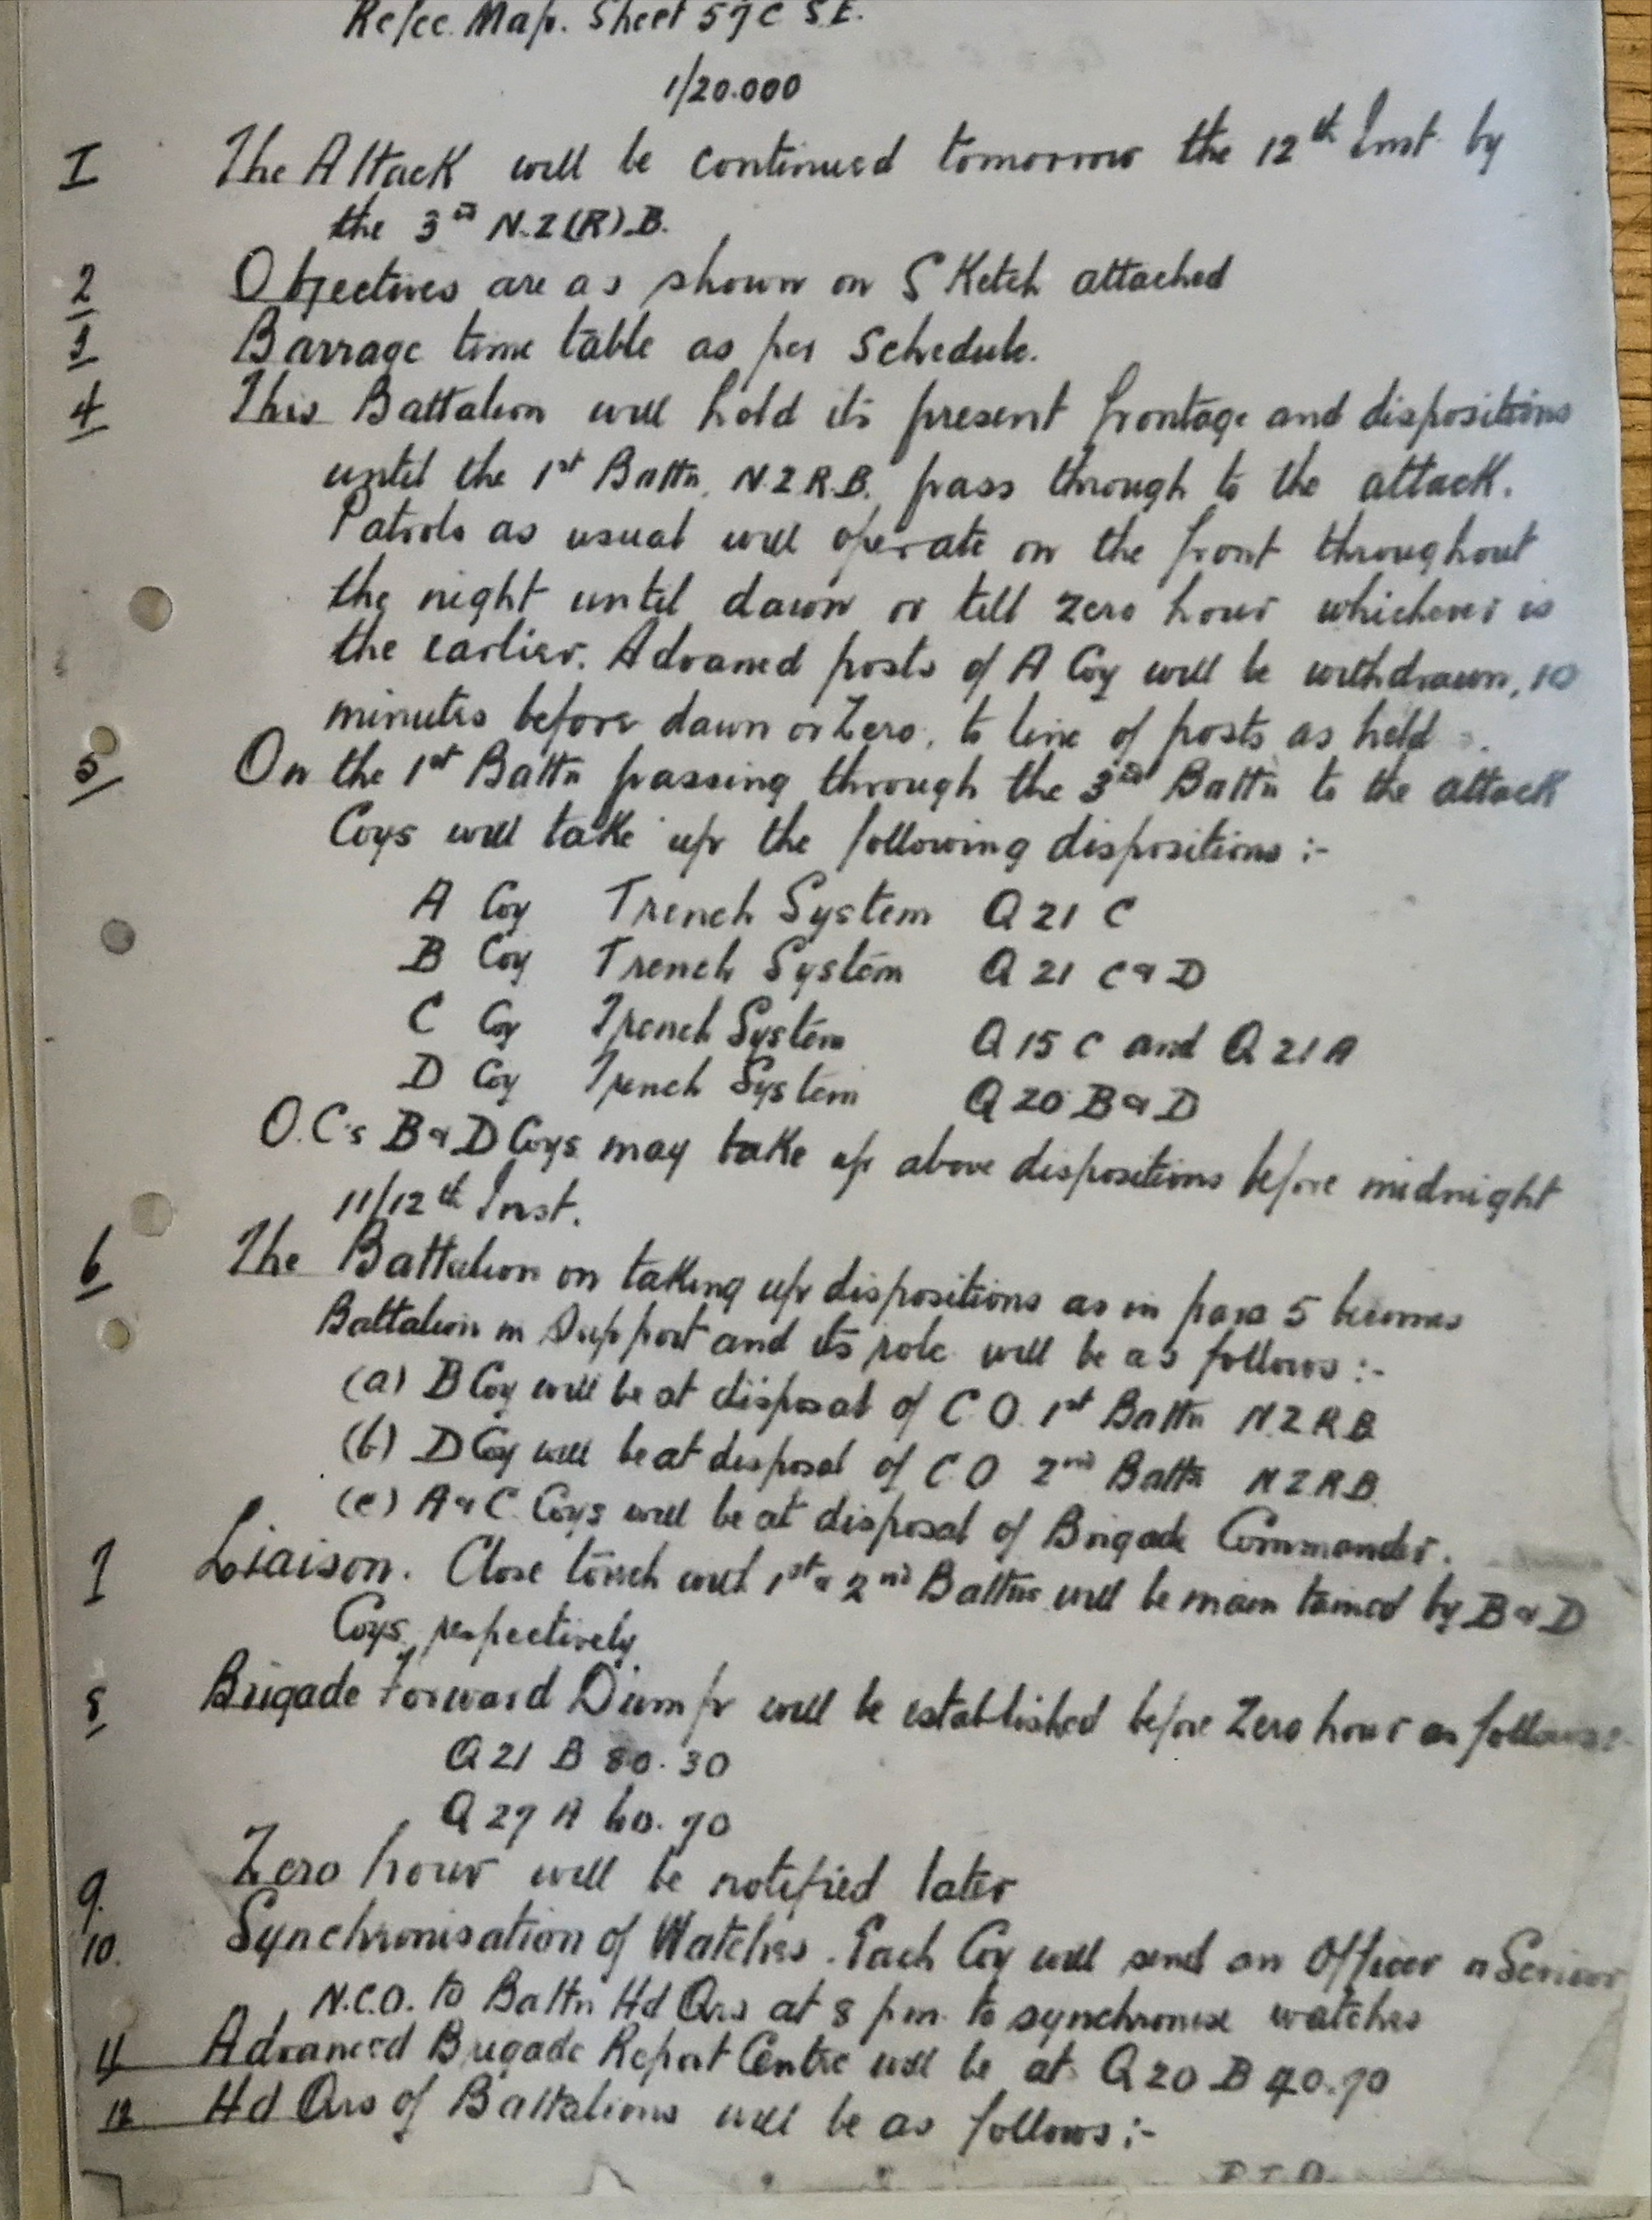 Refce. Map. Sheet 57C S.E.
1/20.000
I The Attack will be continued tomorrow the 12th Inst. by
the 3rd N.Z(R).B.
2 Objectives are as shown on Sketch attached
3 Barrage time table as per Schedule.
4 This Battalion will hold its present frontage and dispositions
until the 1st Battn. N.Z.R.B. pass through to the attack.
Patrols as usual will operate on the front throughout
the night until dawn or till Zero hour whichever is
the earlier. Advanced posts of A Coy will be withdrawn, 10
minutes before dawn or Zero, to line of posts as held.
5 On the 1st Battn passing through the 3rd Battn to the attack
Coys will take up the following dispositions :-
A Coy Trench System Q 21 C
B Coy Trench System Q 21 C & D
C Coy Trench System Q 15 C and Q 21 A
D Coy Trench System Q 20 B & D
O.C's B & D Coys may take up above dispositions before midnight
11/12th Inst.
6 The Battalion on taking up dispositions as in para 5 becomes
Battalion in Support and its role will be as follows :-
(a) B Coy will be at disposal of C.O. 1st Battn N.Z.R.B
(b) D Coy will be at disposal of C.O 2nd Battn N.Z.R.B.
(c) A & C Coys will be at disposal of Brigade Commander.
7 Liaison. Close touch with 1st & 2nd Battns will be maintained by B & D
Coys respectively
8 Brigade Forward Dump will be established before Zero hour as follows:-
Q 21 B 80.30
Q 27 A 60.70
9. Zero hour will be notified later
10. Synchronisation of Watches. Each Coy will send an Officer or Senior
N.C.O. to Battn Hd Qrs at 8 pm. to synchronise watches
11 Advanced Brigade Report Centre will be at Q 20 B 40.70
12 Hd Qrs of Battalions will be as follows :-
P.T.O.